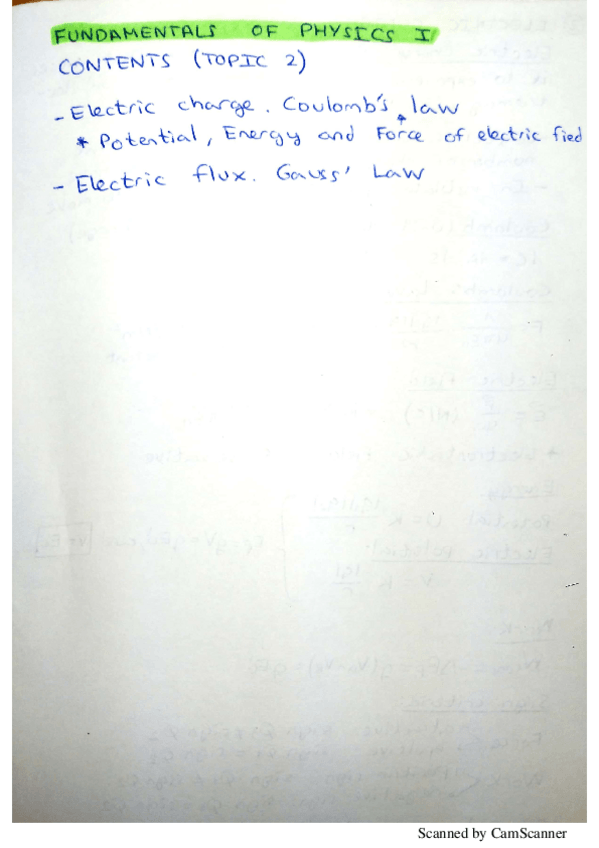 FUNDAMENTALS OF PHYSICS I
CONTENTS (TOPIC 2)
- Electric charge. Coulomb's law
* Potential, Energy and Force of electric fied
- Electric flux. Gauss' Law
Scanned by CamScanner